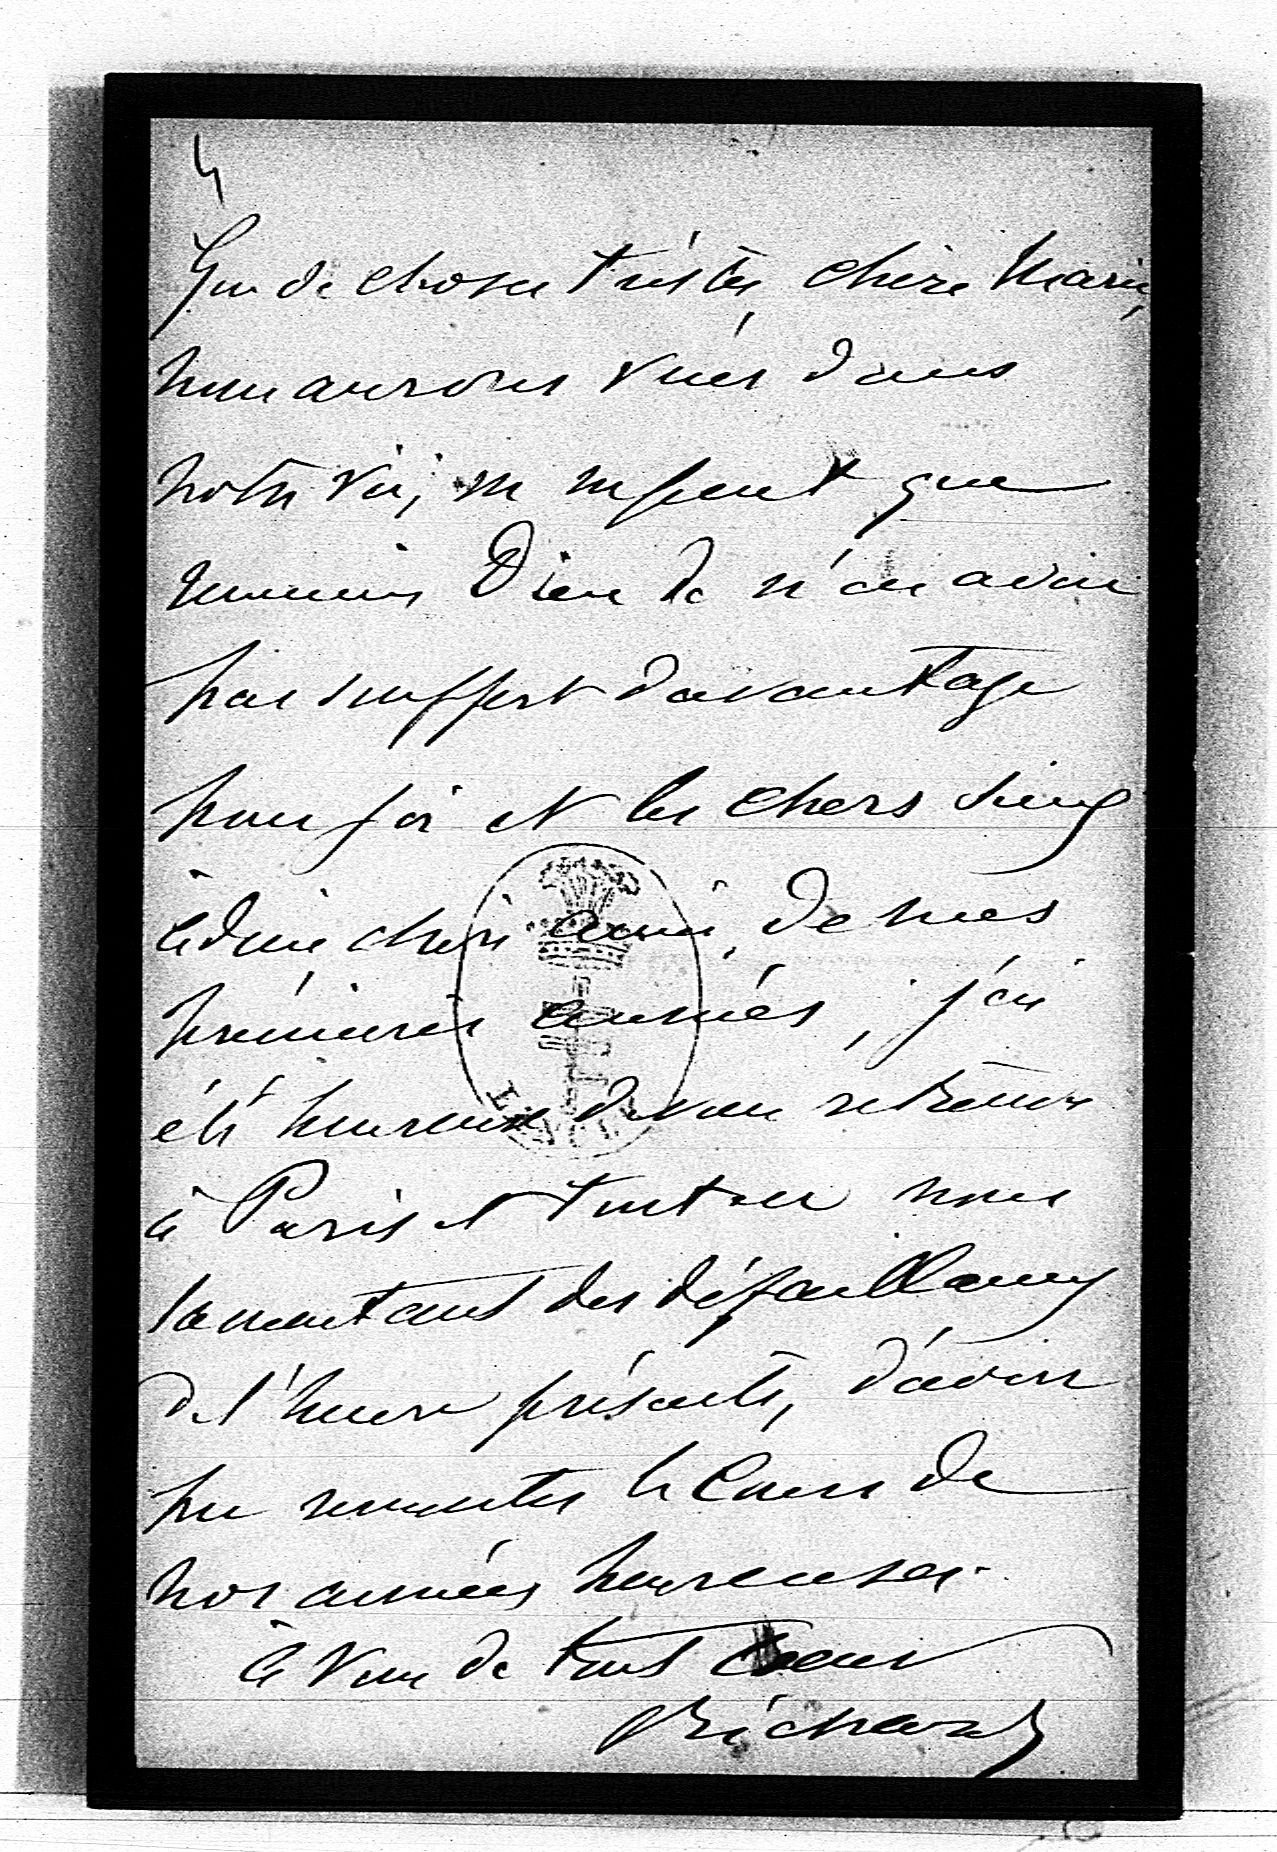 4
Que de choses tristes chère Marie,
nous aurons vues dans
notre vie, on ne peut que
remercier Dieu de n'en avoir
pas souffert davantage
pour soi et les chers siens
adieu chère amie, de mes
premières années, j'ai
été heureux de vous retrouver
à Paris et tout en nous
lamentant des défaillances
de l'heure présente, d'avoir
pu remonter le cours de
nos années heureuses.
à vous de tout coeur
Richard